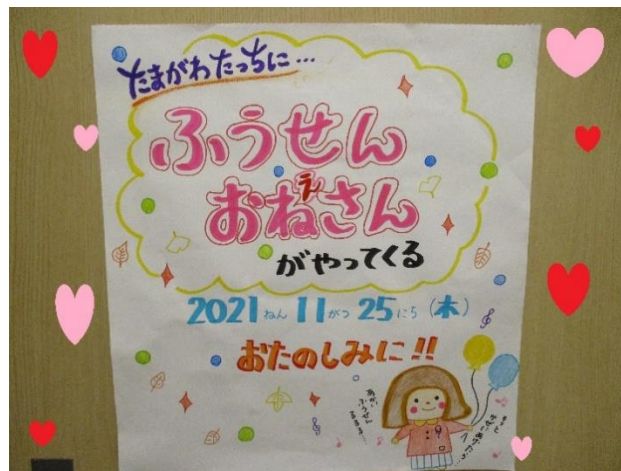 たまがわたっちに…
ふうせん
おねぇさん
がやってくる
2021ねん11がつ25にち(木)
おたのしみに!!
あかい
ふうせん